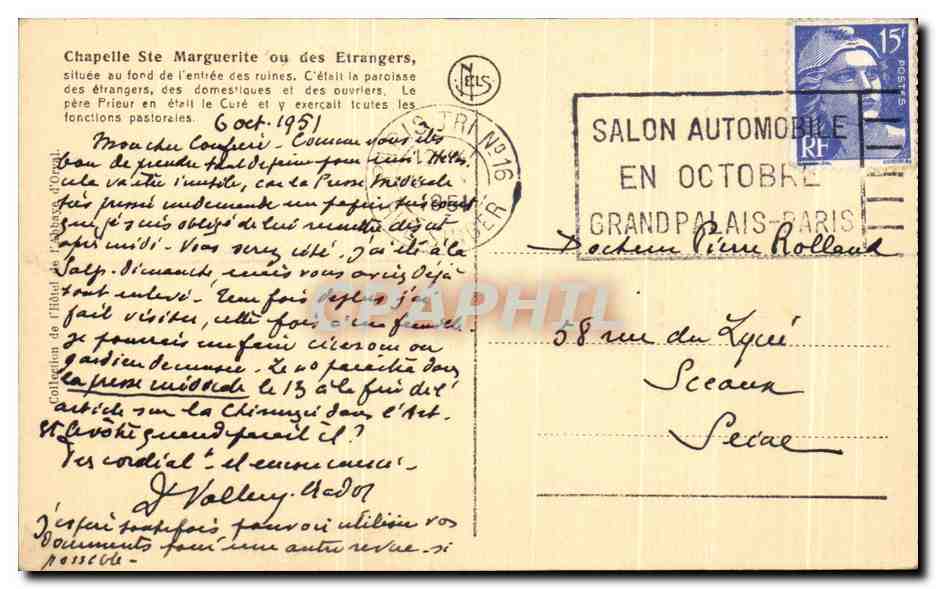 Chapelle Ste Marguerite ou des Etrangers,
située au fond de l'entrée des ruines. C'était la paroisse
des étrangers, des domestiques et des ouvriers. Le
père Prieur en était le Curé et y exerçait toutes les
fonctions pastorales.
NELS
6 oct. 1951
Mon cher Confrère - Comme vous êtes
bon de prendre tant de peine pour moi
cela va être inutile, car la Presse Médicale
très pressée me demande un papier
que je suis obligé de lui remettre
après midi - Vous serez cité. J'ai été à la
Salp. dimanche mais vous aviez déjà
tout enlevé - 1 fois de plus j'ai
fait visiter, cette fois à
je pourrais me faire cicerone ou
gardien de musée. Le no paraîtra dans
la presse médicale le 13 à la fin de l'
article sur la Chirurgie dans l'Art.
Et le vôtre quand paraît il?
Très cordialt et encore merci -
Dr Vallery-Radot
J'espère toutefois pouvoir utiliser vos
documents pour une autre revue - si
possible -
Collection de l'Hôtel de l'Abbaye d'Orval
PARIS TRI No 16
SALON AUTOMOBILE
EN OCTOBRE
GRAND PALAIS-PARIS
15F
POSTES
RF
Docteur Pierre Rolland
58 rue du Lycée
Sceaux
Seine
CPAPHIL